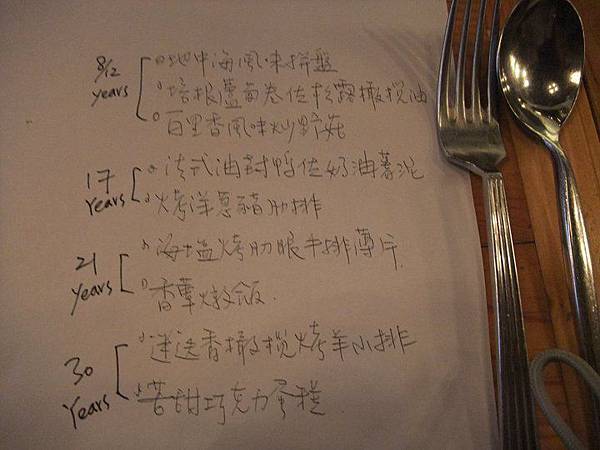 8/12 years 地中海風味拼盤
培根蘆筍卷佐松露橄欖油
百里香風味炒野菇
17 years 法式油封鴨佐奶油薯泥
烤洋蔥豬肋排
21 years 海塩烤肋眼牛排薄片
香蕈燉飯
30 Years 迷迭香橄欖烤羊小排
苦甜巧克力蛋糕